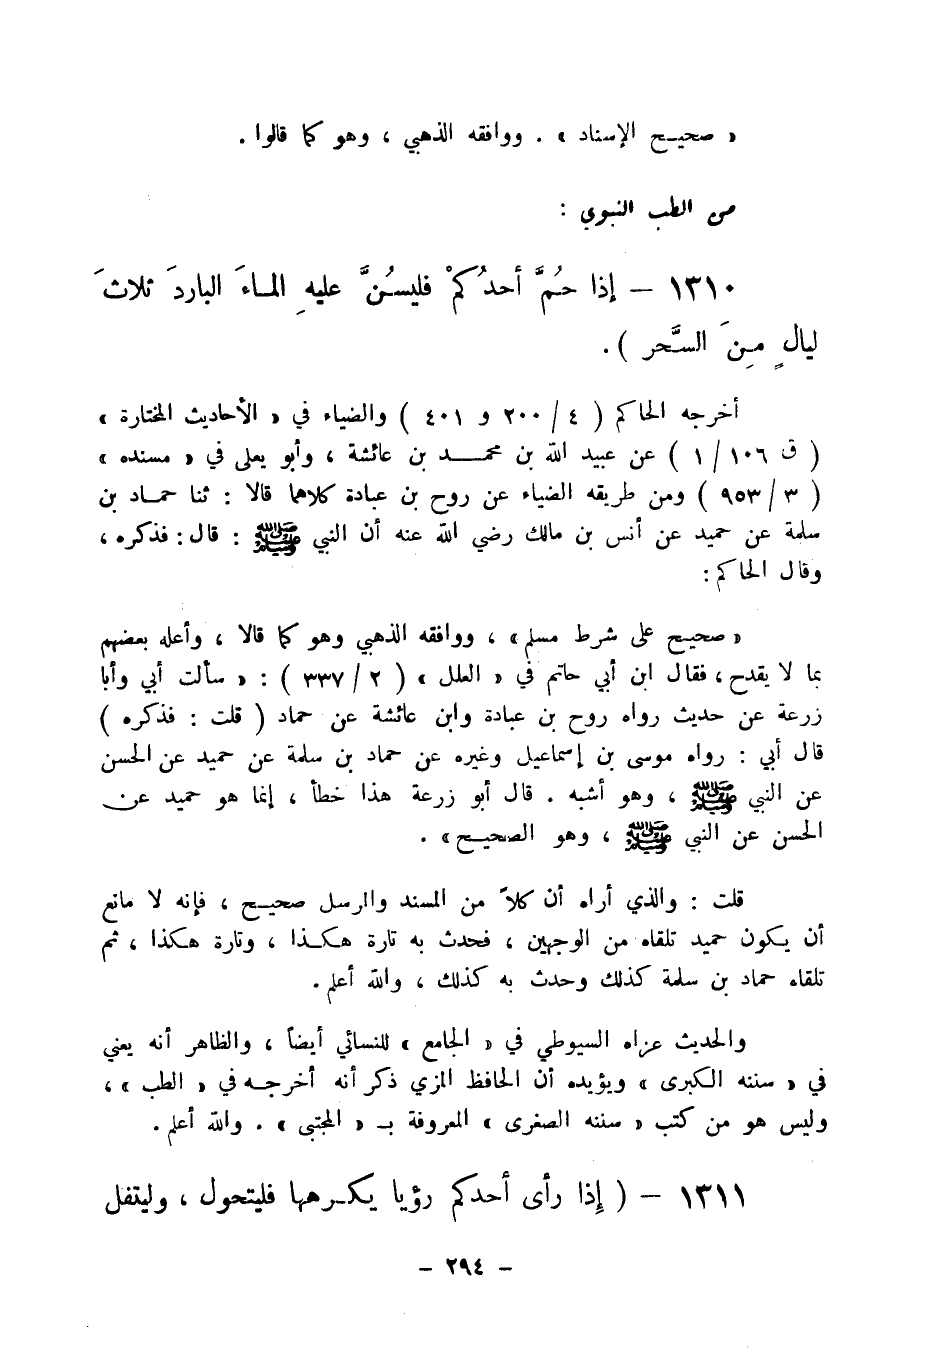 « صحيح الإسناد » . ووافقه الذهبي ، وهو كما قالوا .
من الطب النبوي :
١٣١٠ – إذا حُمَّ أحدُكمْ فليسُنَّ عليهِ الماءَ الباردَ ثلاثَ
ليالٍ مِنَ السَّحر ) .
أخرجه الحاكم ( ٤ / ٢٠٠ و ٤٠١ ) والضياء في « الأحاديث المختارة »
( ق ١٠٦ / ١ ) عن عبيد الله بن محمد بن عائشة ، وأبو يعلى في « مسنده »
( ٣ / ٩٥٣ ) ومن طريقه الضياء عن روح بن عبادة كلاهما قالا : ثنا حماد بن
سلمة عن حميد عن أنس بن مالك رضي الله عنه أن النبي ﷺ : قال : فذكره ،
وقال الحاكم :
« صحيح على شرط مسلم » ، ووافقه الذهبي وهو كما قالا ، وأعله بعضهم
بما لا يقدح ، فقال ابن أبي حاتم في « العلل » ( ٢ / ٣٣٧ ) : « سألت أبي وأبا
زرعة عن حديث رواه روح بن عبادة وابن عائشة عن حماد ( قلت : فذكره )
قال أبي : رواه موسى بن إسماعيل وغيره عن حماد بن سلمة عن حميد عن الحسن
عن النبي ﷺ ، وهو أشبه . قال أبو زرعة هذا خطأ ، إنما هو حميد عن
الحسن عن النبي ﷺ ، وهو الصحيح » .
قلت : والذي أراه أن كلاً من المسند والمرسل صحيح ، فإنه لا مانع
أن يكون حميد تلقاه من الوجهين ، فحدث به تارة هكذا ، وتارة هكذا ، ثم
تلقاه حماد بن سلمة كذلك وحدث به كذلك ، والله أعلم .
والحديث عزاه السيوطي في « الجامع » للنسائي أيضاً ، والظاهر أنه يعني
في « سننه الكبرى » ويؤيده أن الحافظ المزي ذكر أنه أخرجه في « الطب » ،
وليس هو من كتب « سننه الصغرى » المعروفة بـ « المجتبى » . والله أعلم .
١٣١١ – ( إذا رأى أحدكم رؤيا يكرهها فليتحول ، وليتفل
– ٢٩٤ –